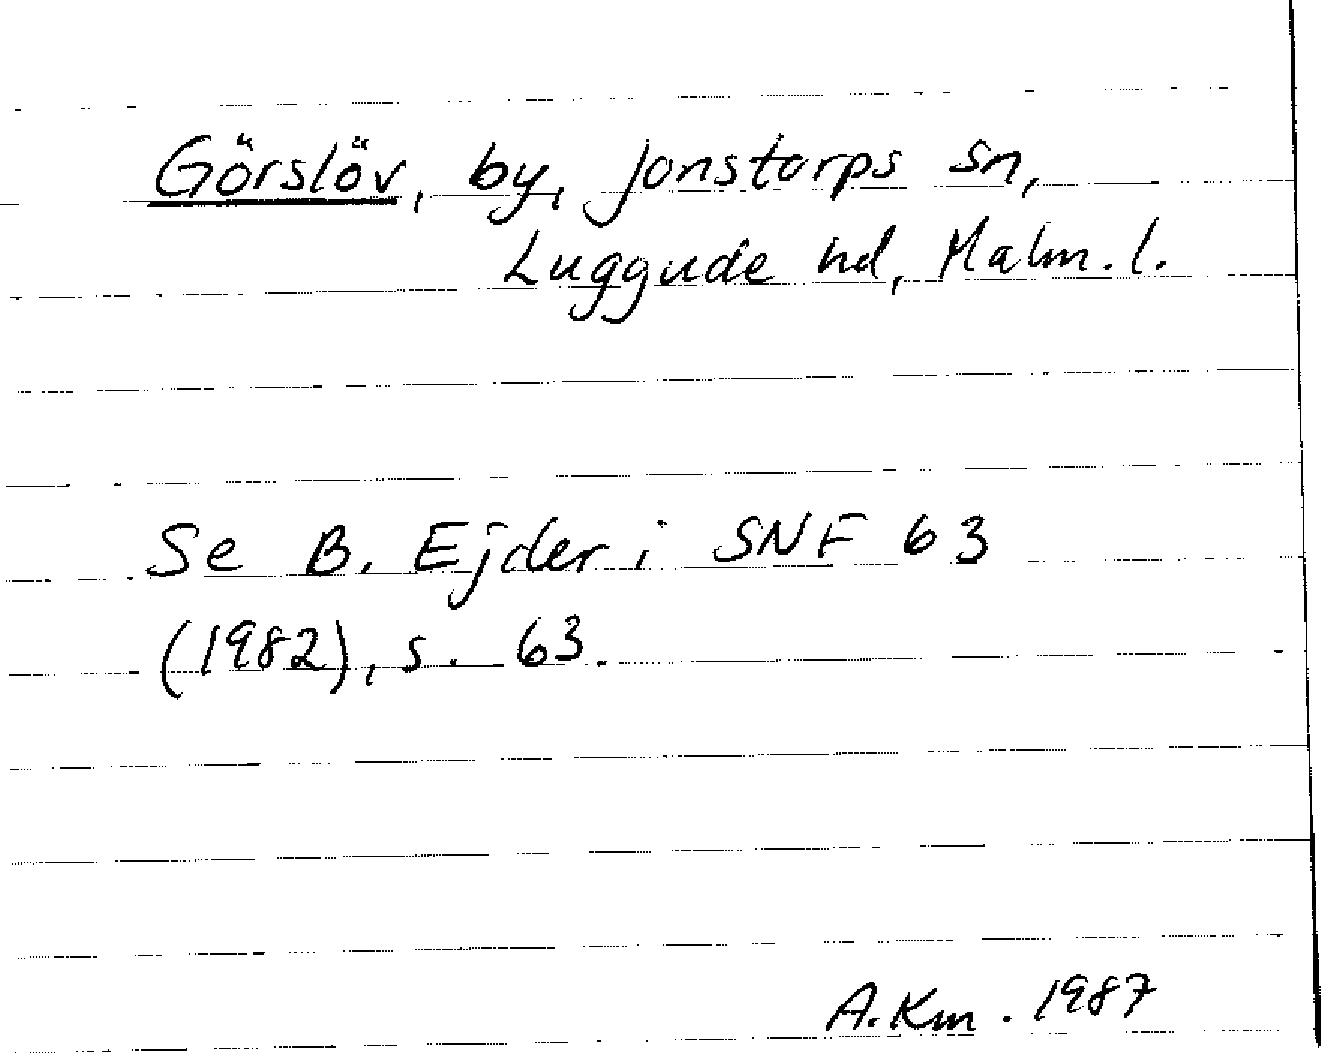 Görslöv, by, Jonstorps sn,
Luggude hd, Malm. l.
Se B. Ejder i SNF 63
(1982), s. 63.
A. Km. 1987